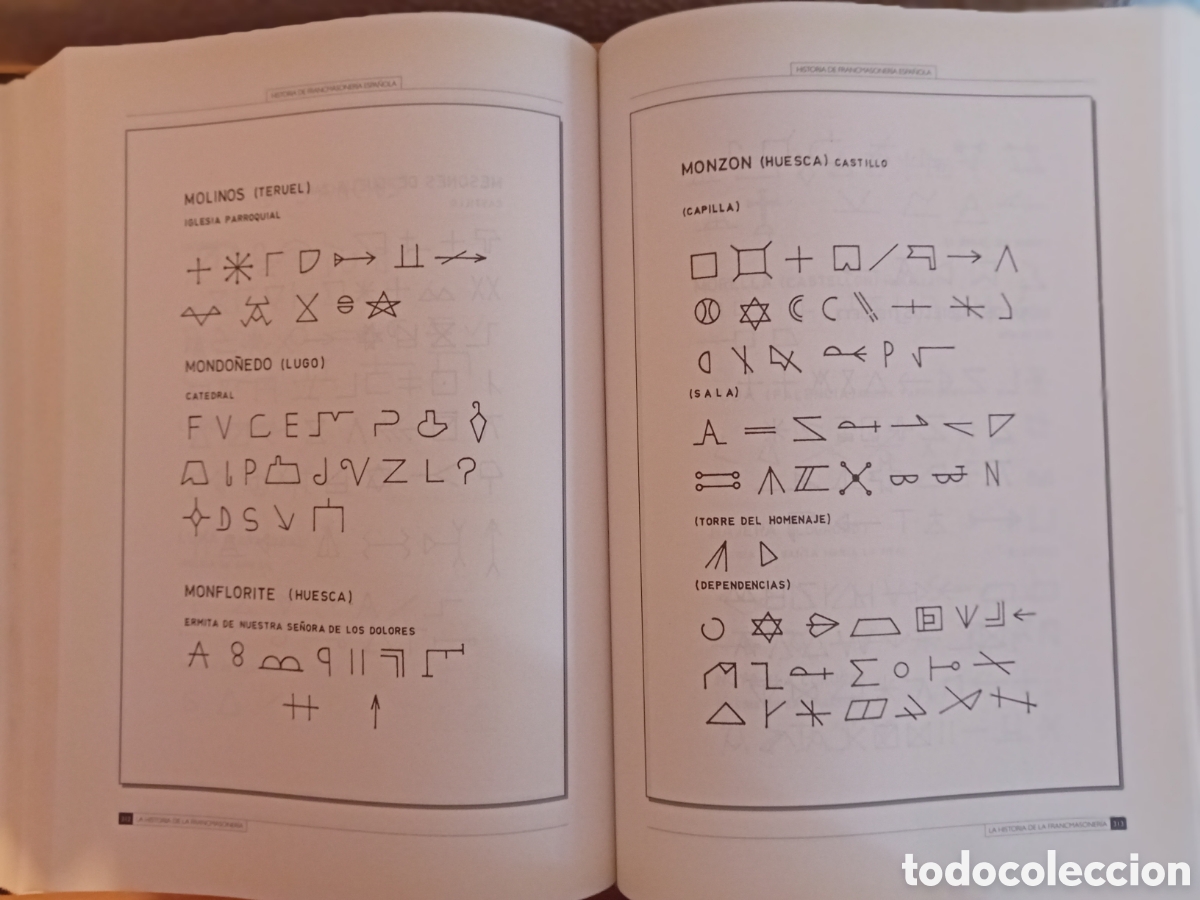 HISTORIA DE FRANCMASONERÍA ESPAÑOLA
MOLINOS (TERUEL)
IGLESIA PARROQUIAL
MONDOÑEDO (LUGO)
CATEDRAL
F V C E
P Z L
D S
MONFLORITE (HUESCA)
ERMITA DE NUESTRA SEÑORA DE LOS DOLORES
A 8
LA HISTORIA DE LA FRANCMASONERÍA
HISTORIA DE FRANCMASONERÍA ESPAÑOLA
MONZON (HUESCA) CASTILLO
(CAPILLA)
P
(SALA)
A
N
(TORRE DEL HOMENAJE)
(DEPENDENCIAS)
LA HISTORIA DE LA FRANCMASONERÍA 313
todocoleccion.net